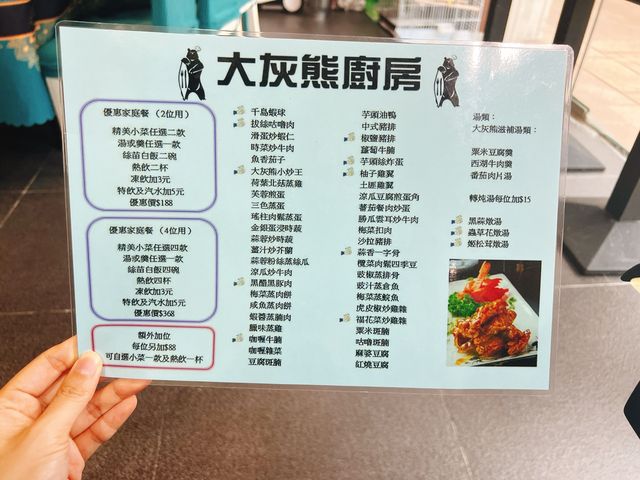 大灰熊廚房
優惠家庭餐（2位用）
精美小菜任選二款
湯或羹任選一款
絲苗白飯二碗
熱飲二杯
凍飲加3元
特飲及汽水加5元
優惠價$188
優惠家庭餐（4位用）
精美小菜任選四款
湯或羹任選一款
絲苗白飯四碗
熱飲四杯
凍飲加3元
特飲及汽水加5元
優惠價$368
額外加位
每位另加$88
可自選小菜一款及熱飲一杯
千島蝦球
拔絲咕嚕肉
滑蛋炒蝦仁
時菜炒牛肉
魚香茄子
大灰熊小炒王
荷葉北菇蒸雞
芙蓉煎蛋
三色蒸蛋
瑤柱肉鬆蒸蛋
金銀蛋浸時蔬
蒜蓉炒時蔬
薑汁炒芥蘭
蒜蓉粉絲蒸絲瓜
涼瓜炒牛肉
黑醋黑豚肉
梅菜蒸肉餅
咸魚蒸肉餅
蝦醬蒸腩肉
臘味蒸雞
咖喱牛腩
咖喱雜菜
豆腐斑腩
芋頭油鴨
中式豬排
椒鹽豬排
蘿蔔牛腩
芋頭絲炸蛋
柚子雞翼
土匪雞翼
涼瓜豆腐煎蛋角
蕃茄餐肉炒蛋
勝瓜雲耳炒牛肉
梅菜扣肉
沙拉豬排
蒜香一字骨
欖菜肉鬆四季豆
豉椒蒸排骨
豉汁蒸倉魚
梅菜蒸鯇魚
虎皮椒炒雞雜
福花菜炒雞雜
粟米斑腩
咕嚕斑腩
麻婆豆腐
紅燒豆腐
湯類：
大灰熊滋補湯類：
粟米豆腐羹
西湖牛肉羹
番茄肉片湯
轉炖湯每位加$15
黑蒜燉湯
蟲草花燉湯
姬松茸燉湯